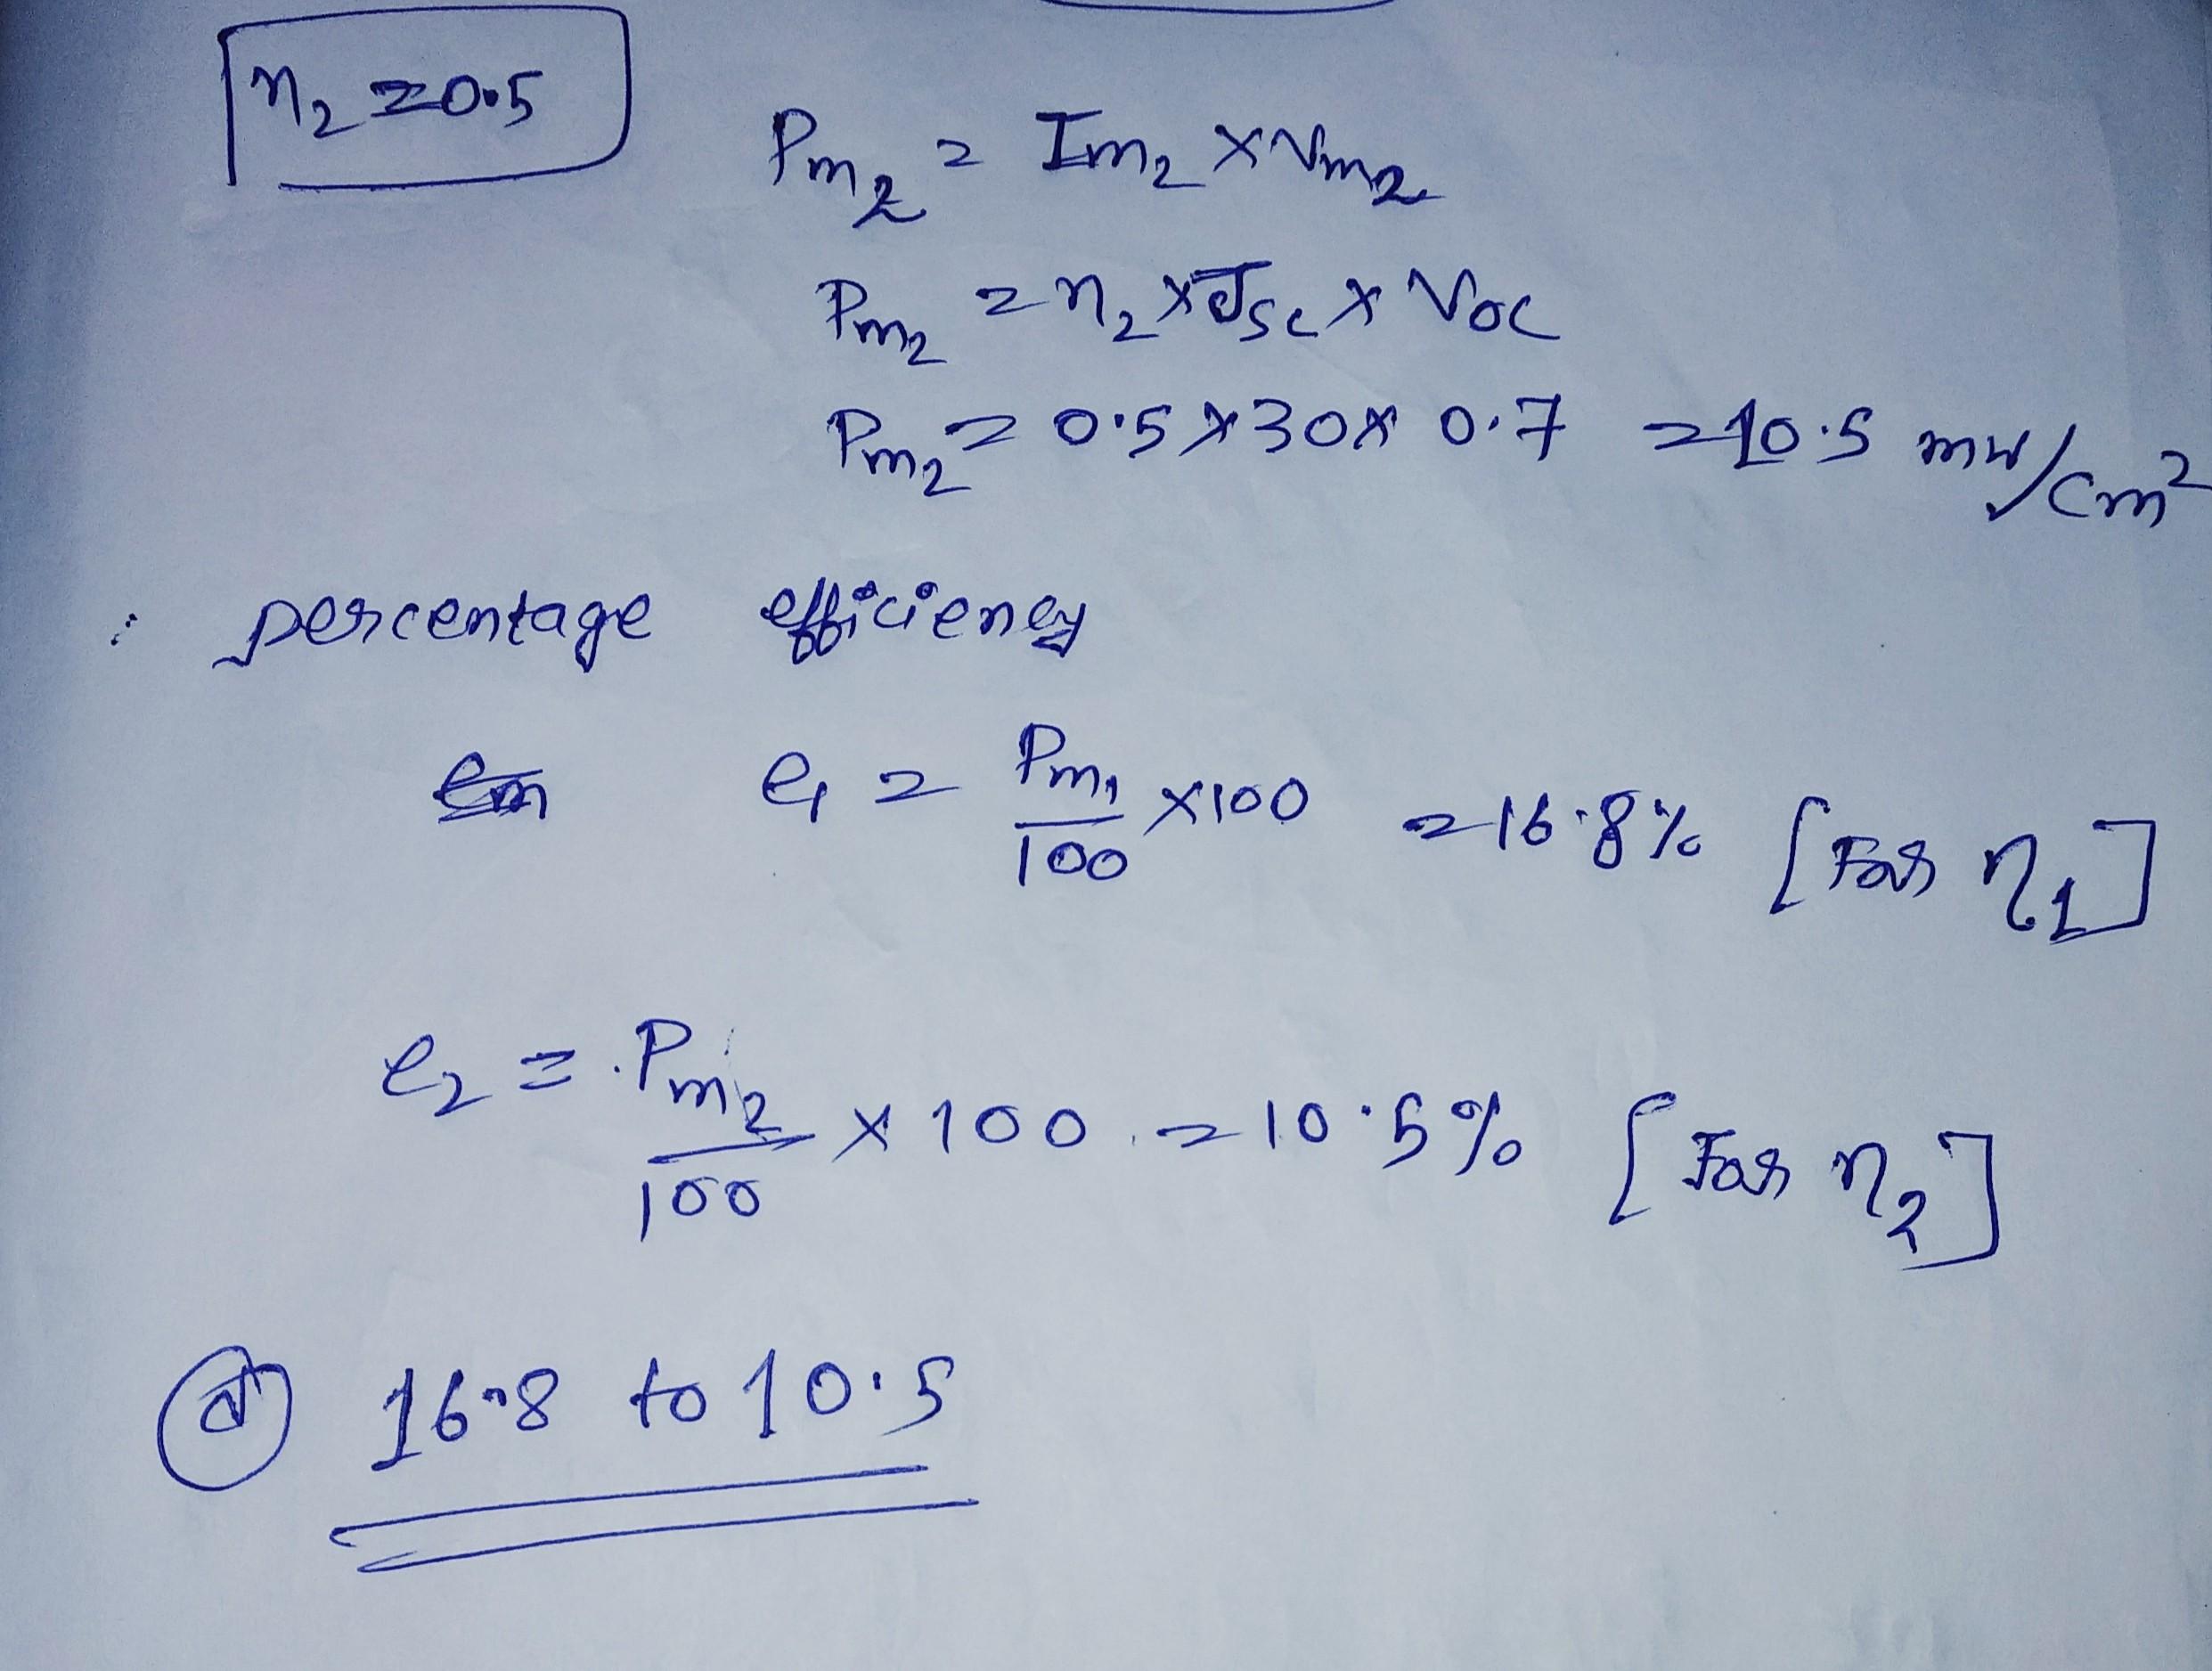 η₂ = 0.5
Pm₂ = Im₂ × Vm₂
Pm₂ = η₂ × Jsc × Voc
Pm₂ = 0.5 × 30 × 0.7 = 10.5 mw/cm²
percentage efficiency
e₁ = Pm₁/100 × 100 = 16.8% [For η₁]
e₂ = Pm₂/100 × 100 = 10.5% [For η₂]
16.8 to 10.5